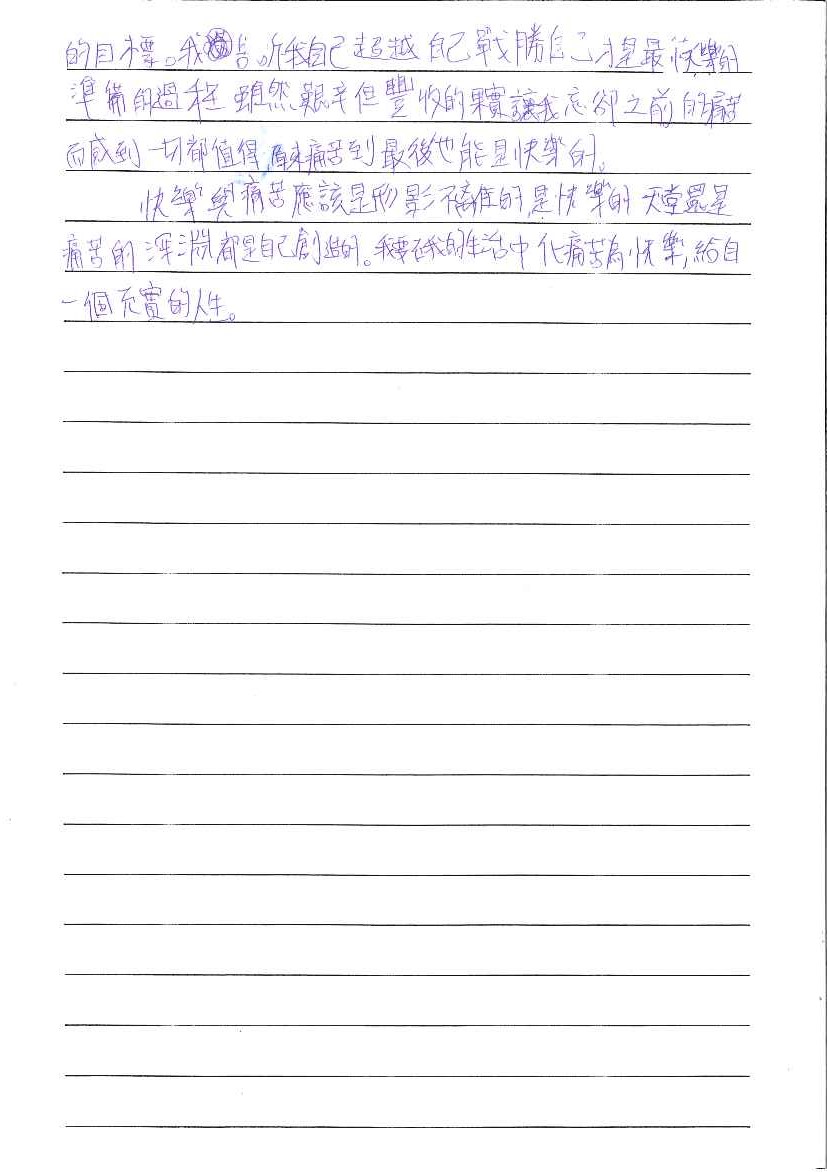 的目標。我告訴我自己超越自己戰勝自己才是最快樂的
準備的過程雖然艱辛但豐收的果實讓我忘卻之前的痛苦
而感到一切都值得,原來痛苦到最後也能是快樂的。
快樂與痛苦應該是形影不離的,是快樂的天堂還是
痛苦的深淵都是自己創造的。我要在我的生活中化痛苦為快樂,給自
一個充實的人生。